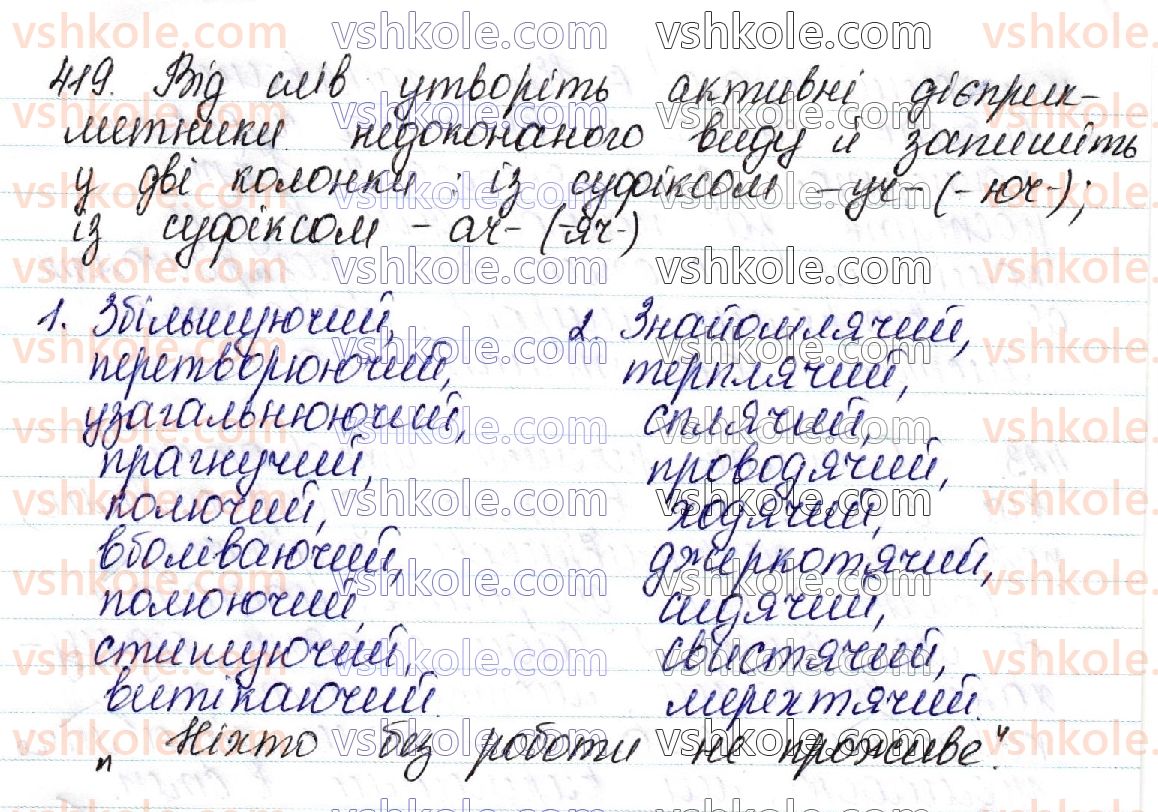 419. Від слів утворіть активні дієприк-
метники недоконаного виду й запишіть
у дві колонки: із суфіксом -уч- (-юч-);
із суфіксом -ач- (-яч-)
1. Збільшуючий,
перетворюючий,
узагальнюючий,
прагнучий,
колючий,
вболіваючий,
полюючий,
стишуючий,
витікаючий.
2. Знайомлячий,
терплячий,
сплячий,
проводячий,
ходячий,
джеркотячий,
сидячий,
свистячий,
мерехтячий.
„Ніхто без роботи не проживе".
vshkole.com